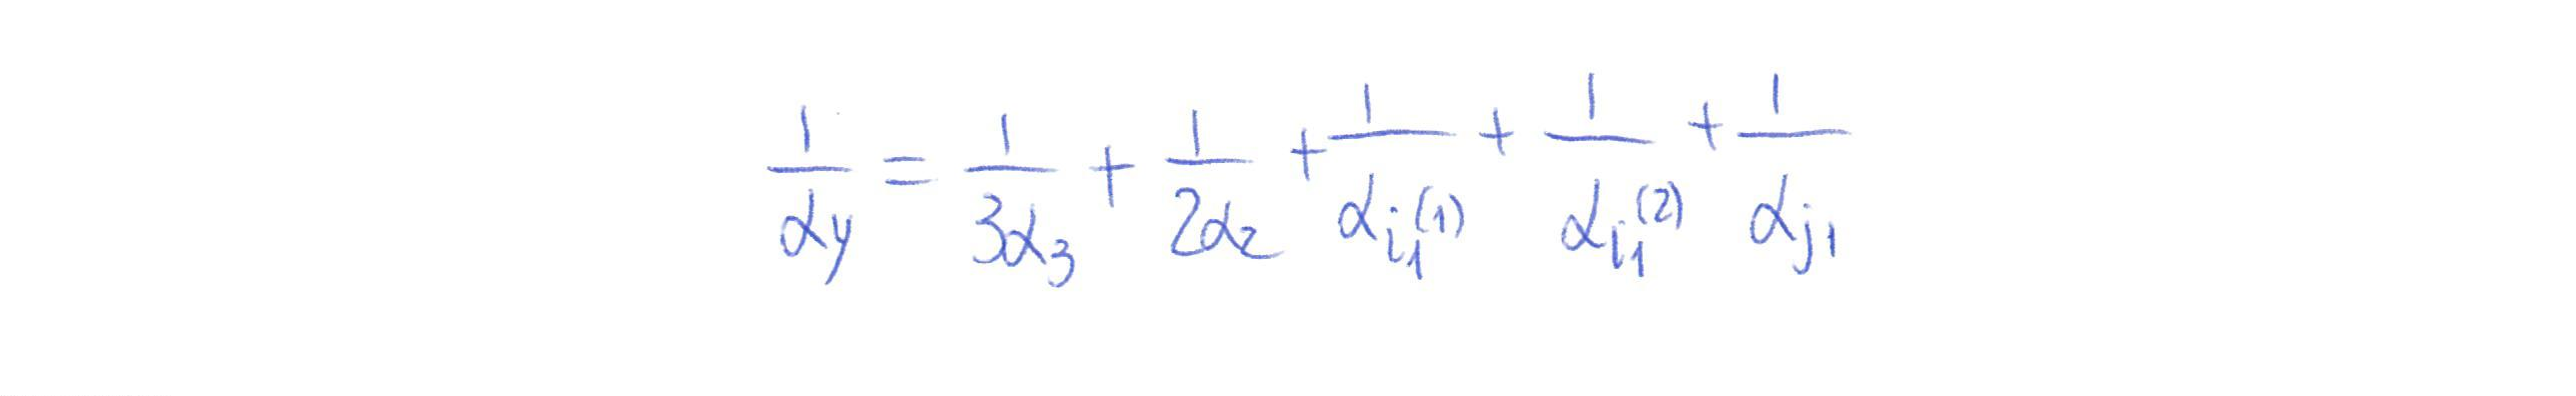 \frac{1}{\alpha_y} = \frac{1}{3\alpha_3} + \frac{1}{2\alpha_2} + \frac{1}{\alpha_{i_1^{(1)}}} + \frac{1}{\alpha_{i_1^{(2)}}} + \frac{1}{\alpha_{j_1}}